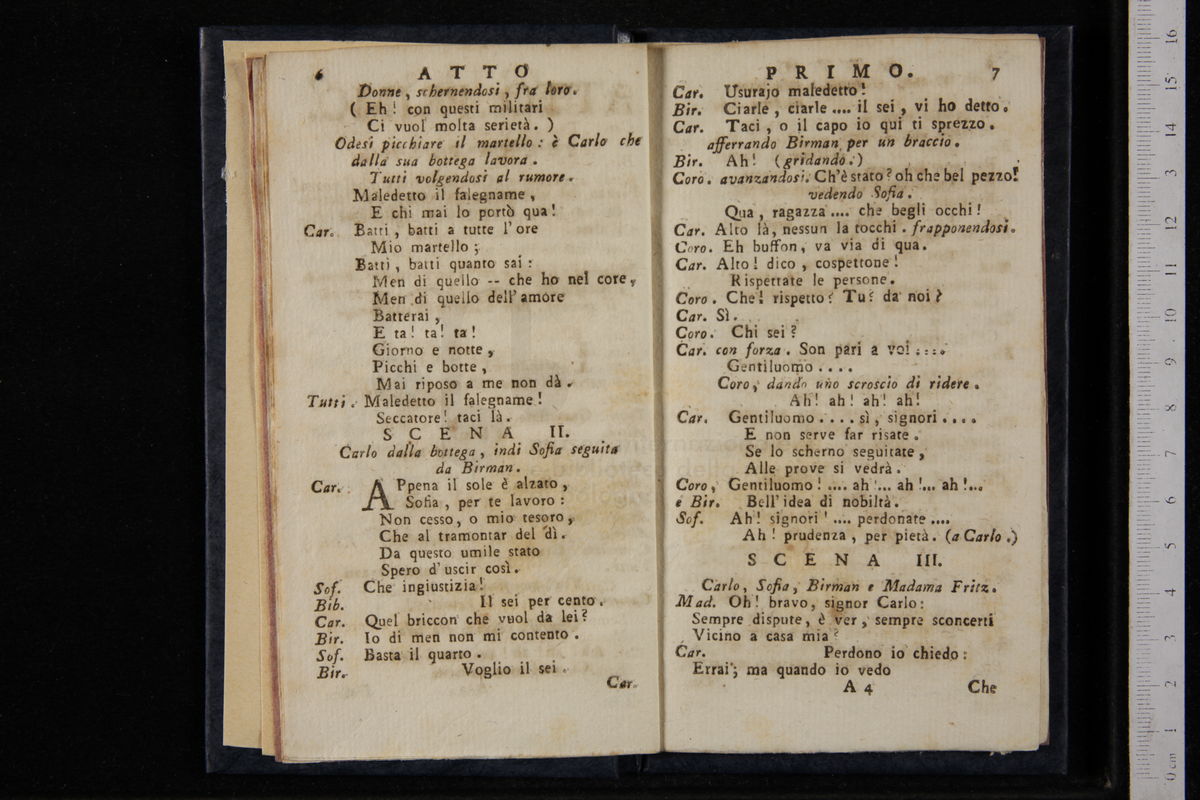 6 ATTO
Donne, schernendosi, fra loro.
( Eh! con questi militari
Ci vuol molta serietà. )
Odesi picchiare il martello: è Carlo che
dalla sua bottega lavora.
Tutti volgendosi al rumore.
Maledetto il falegname,
E chi mai lo portò qua!
Car. Batti, batti a tutte l'ore
Mio martello;
Batti, batti quanto sai:
Men di quello -- che ho nel core,
Men di quello dell'amore
Batterai,
E ta! ta! ta!
Giorno e notte,
Picchi e botte,
Mai riposo a me non dà.
Tutti. Maledetto il falegname!
Seccatore! taci là.
SCENA II.
Carlo dalla bottega, indi Sofia seguita
da Birman.
Car. APpena il sole è alzato,
Sofia, per te lavoro:
Non cesso, o mio tesoro,
Che al tramontar del dì.
Da questo umile stato
Spero d'uscir così.
Sof. Che ingiustizia!
Bib. Il sei per cento.
Car. Quel briccon che vuol da lei?
Bir. Io di men non mi contento.
Sof. Basta il quarto.
Bir. Voglio il sei.
Car.
PRIMO. 7
Car. Usurajo maledetto!
Bir. Ciarle, ciarle .... il sei, vi ho detto.
Car. Taci, o il capo io qui ti sprezzo.
afferrando Birman per un braccio.
Bir. Ah! (gridando.)
Coro. avanzandosi. Ch'è stato? oh che bel pezzo!
vedendo Sofia.
Qua, ragazza .... che begli occhi!
Car. Alto là, nessun la tocchi. frapponendosi.
Coro. Eh buffon, va via di qua.
Car. Alto! dico, cospettone!
Rispettate le persone.
Coro. Che! rispetto? Tu? da noi?
Car. Sì.
Coro. Chi sei?
Car. con forza. Son pari a voi ....
Gentiluomo ....
Coro, dando uno scroscio di ridere.
Ah! ah! ah! ah!
Car. Gentiluomo .... sì, signori ....
E non serve far risate.
Se lo scherno seguitate,
Alle prove si vedrà.
Coro, Gentiluomo! .... ah!... ah!... ah!...
e Bir. Bell'idea di nobiltà.
Sof. Ah! signori! .... perdonate ....
Ah! prudenza, per pietà. (a Carlo.)
SCENA III.
Carlo, Sofia, Birman e Madama Fritz.
Mad. Oh! bravo, signor Carlo:
Sempre dispute, è ver, sempre sconcerti
Vicino a casa mia?
Car. Perdono io chiedo:
Errai; ma quando io vedo
A 4 Che
0 cm 1 2 3 4 5 6 7 8 9 10 11 12 13 14 15 16